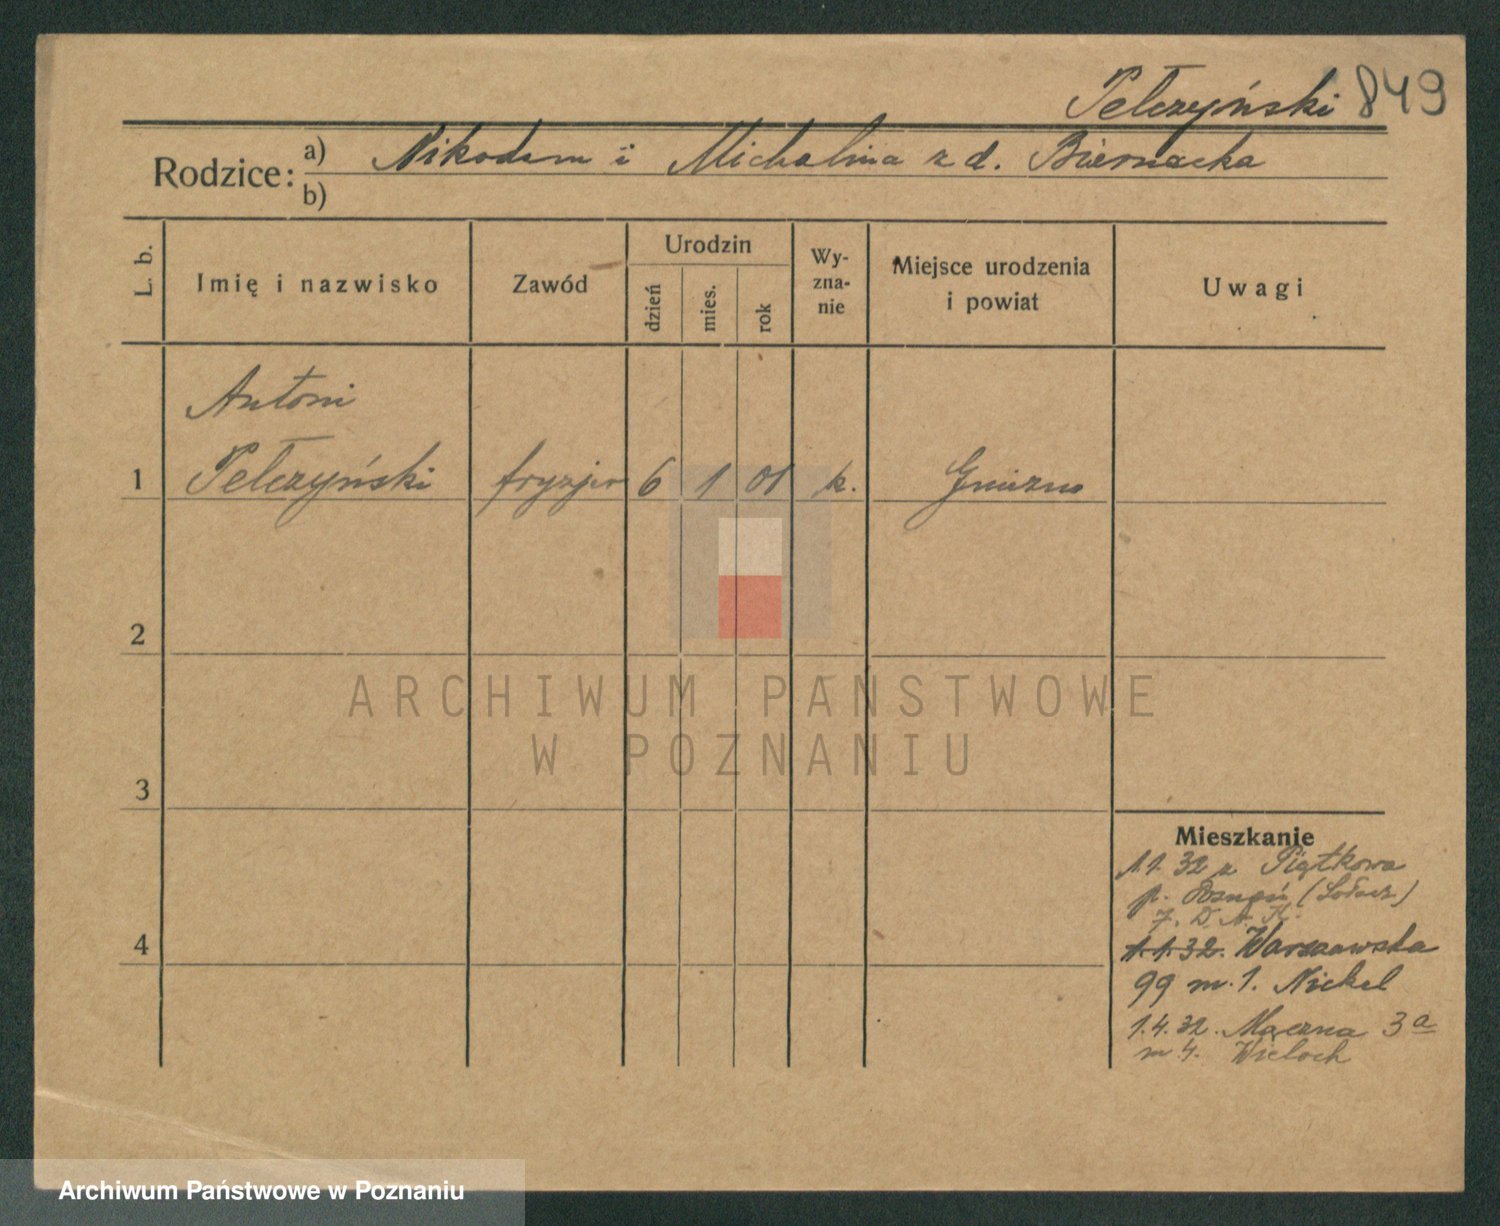 Pełczyński 849
Rodzice: a) Nikodem i Michalina z d. Biernacka
b)
L. b.
Imię i nazwisko
Zawód
Urodzin
dzień
mies.
rok
Wy-
zna-
nie
Miejsce urodzenia
i powiat
Uwagi
Antoni
1 Pełczyński fryzjer 6 1 01 k. Gniezno
2
3
4
Mieszkanie
1.1.32 z Piątkowa
p. Poznań (Sołacz)
1.1.32. Warszawska
99 m. 1. Nickel
1.4.32. Mączna 3a
m 4. Wieloch
ARCHIWUM PAŃSTWOWE
W POZNANIU
Archiwum Państwowe w Poznaniu